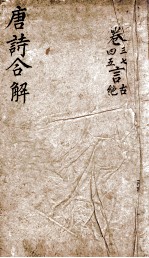 卷三四七五言古絶
唐詩合解